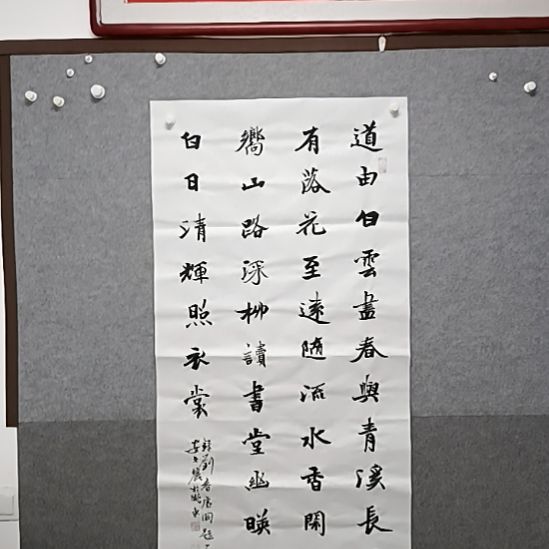 道由白雲盡春與青溪長
有落花至遠隨流水香閑
嚮山路深柳讀書堂幽映
白日清輝照衣裳